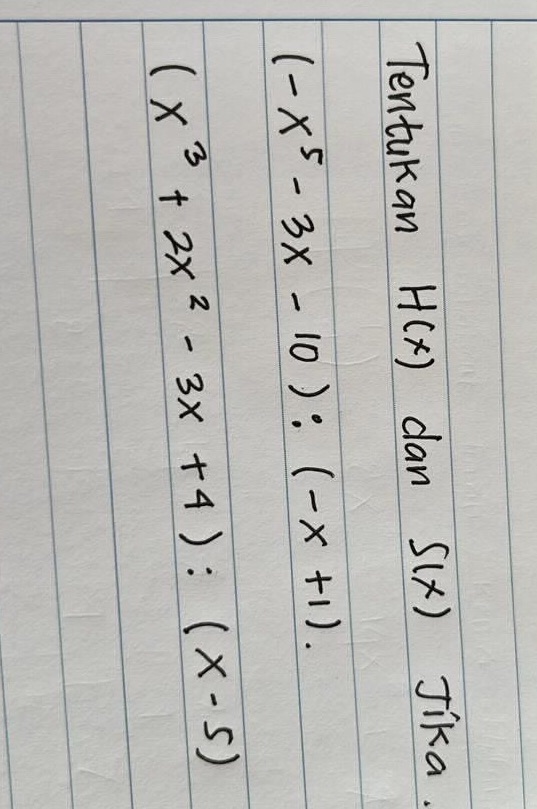 Tentukan H(x) dan S(x) Jika.
(-x⁵ - 3x - 10) : (-x +1).
(x³ + 2x² - 3x +4) : (x - 5)